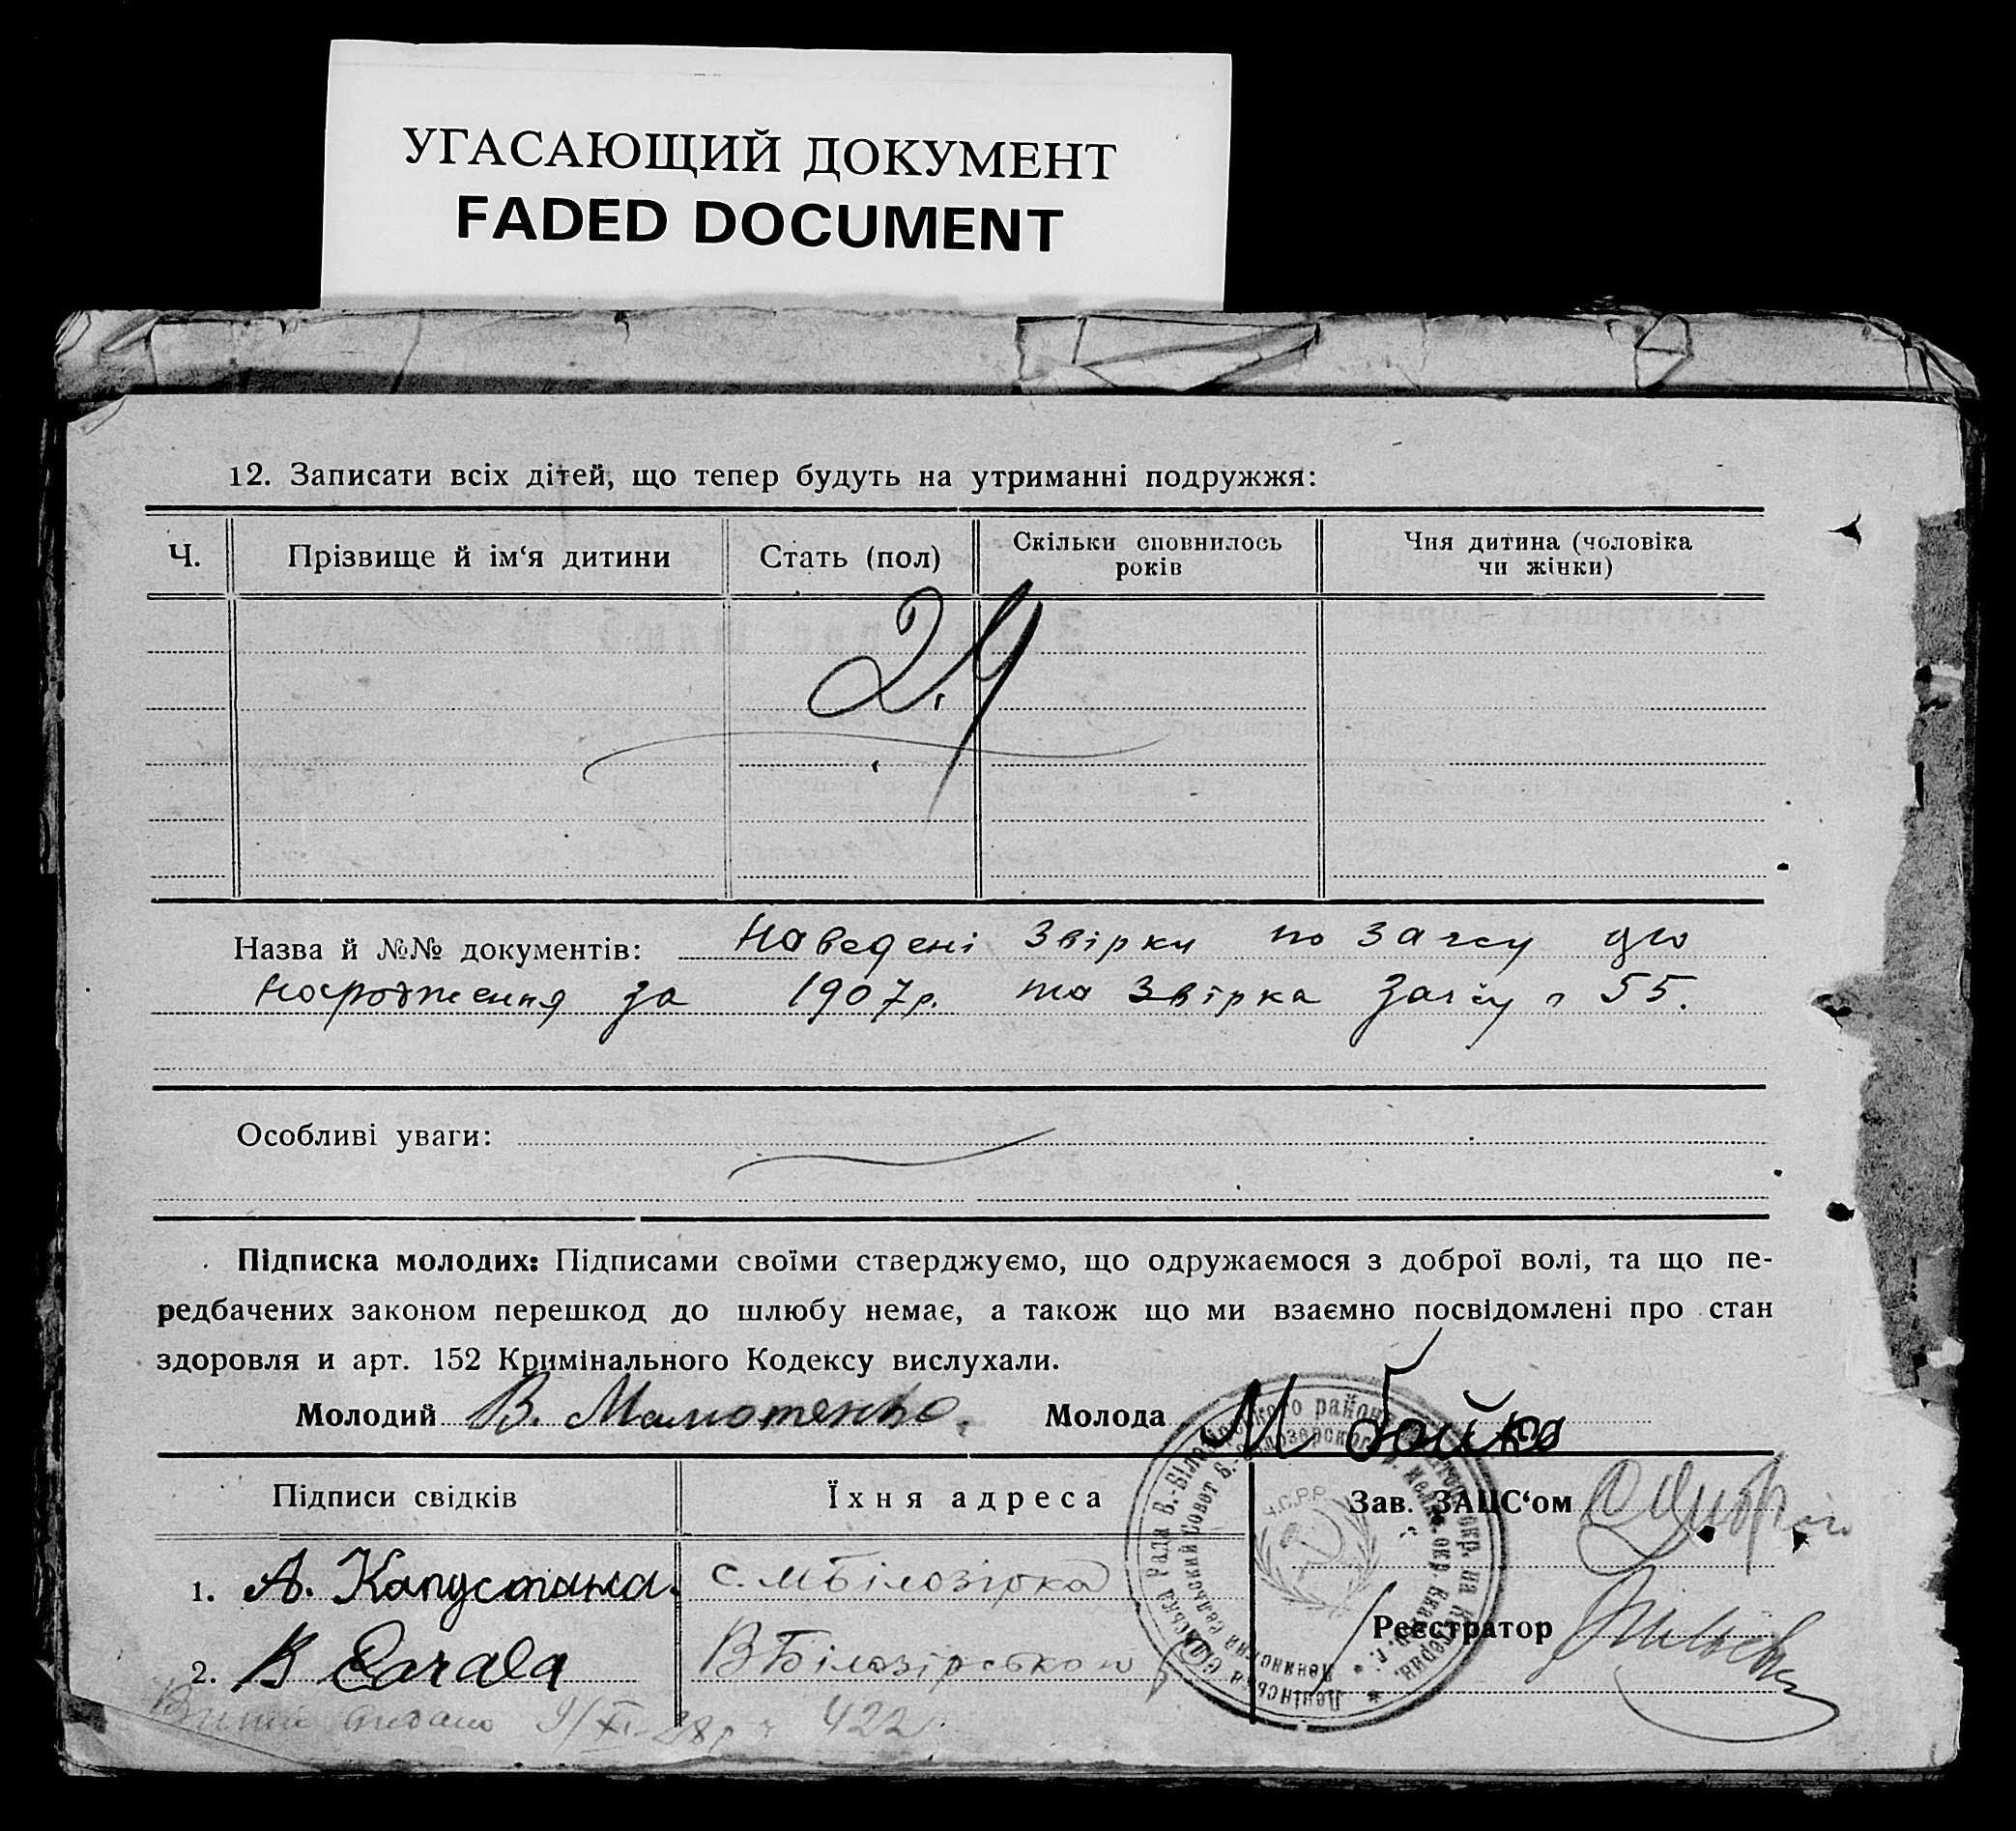 УГАСАЮЩИЙ ДОКУМЕНТ
FADED DOCUMENT
12. Записати всіх дітей, що тепер будуть на утриманні подружжя:
Ч. Прізвище й ім‘я дитини Стать (пол) Скільки сповнилось років Чия дитина (чоловіка чи жінки)
Назва й №№ документів: Наведені звірки по загсу
народження за 1907р. та звірка загсу 55.
Особливі уваги:
Підписка молодих: Підписами своїми стверджуємо, що одружаємося з доброї волі, та що пе-
редбачених законом перешкод до шлюбу немає, а також що ми взаємно посвідомлені про стан
здоровля и арт. 152 Кримінального Кодексу вислухали.
Молодий В. Мамотенко. Молода М Бойко
Підписи свідків Їхня адреса Зав. ЗАЦС‘ом
У.С.Р.Р.
1. А. Капустяна. с. МБілозірка
Реєстратор
2. В ВБілозірською
видано 9/XI-28р 422